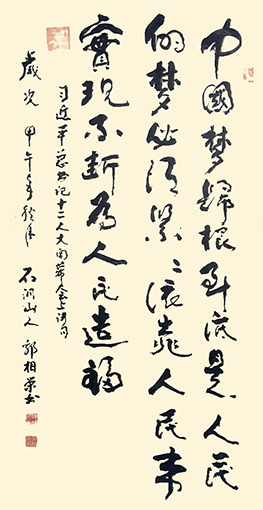 中國夢歸根到底是人民
的夢必须緊〻依靠人民来
實現不断為人民造福
习近平总书记十二人大闭幕会上
歲次甲午年 石洞山人 郭相荣书